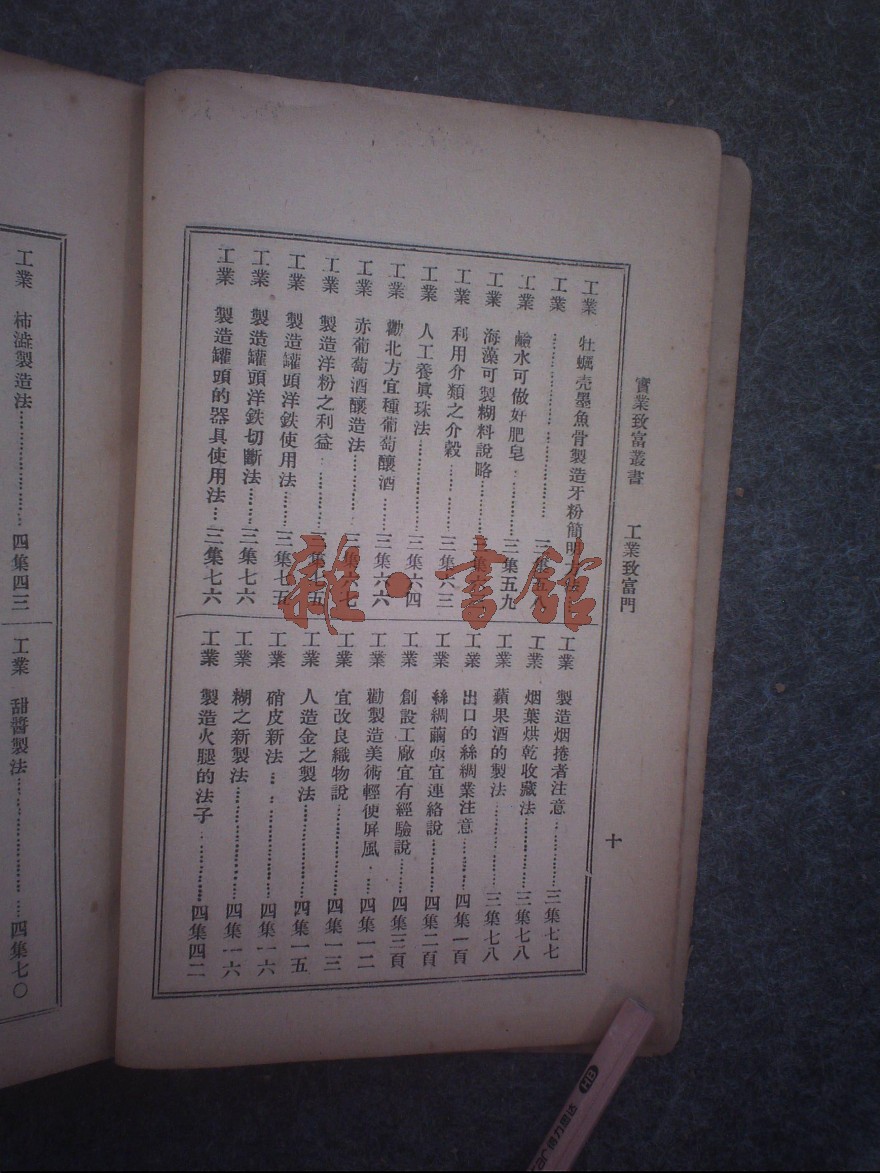 實業致富叢書　工業致富門
十
工業　牡蠣壳墨魚骨製造牙粉簡明方法
工業　…………………三集五八
工業　鹼水可做好肥皂…………三集五九
工業　海藻可製糊料說略………三集六
工業　利用介類之介穀……三集六三
工業　人工養眞珠法…………三集六四
工業　勸北方宜種葡萄釀酒……三集六六
工業　赤葡萄酒釀造法…………三集六七
工業　製造洋粉之利益…………三集七五
工業　製造罐頭洋鉄使用法……三集七五
工業　製造罐頭洋鉄切斷法……三集七六
工業　製造罐頭的器具使用法…三集七六
工業　製造烟捲者注意…………三集七七
工業　烟葉烘乾收藏法…………三集七八
工業　蘋果酒的製法……………三集七八
工業　出口的絲綢業注意………四集一頁
工業　絲綢繭宜連絡說………四集二頁
工業　創設工廠宜有經驗說……四集三頁
工業　勸製造美術輕便屏風……四集一二
工業　宜改良織物說……………四集一三
工業　人造金之製法……………四集一五
工業　硝皮新法…………………四集一六
工業　糊之新製法………………四集一六
工業　製造火腿的法子…………四集四二
工業　柿澁製造法………………四集四三
工業　甜醬製法…………………四集七〇
雜·書館
HB